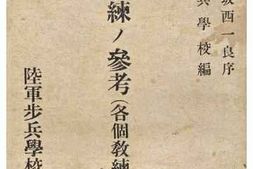 坂西一良序
兵學校編
練ノ參考(各個教練
陸軍步兵學校